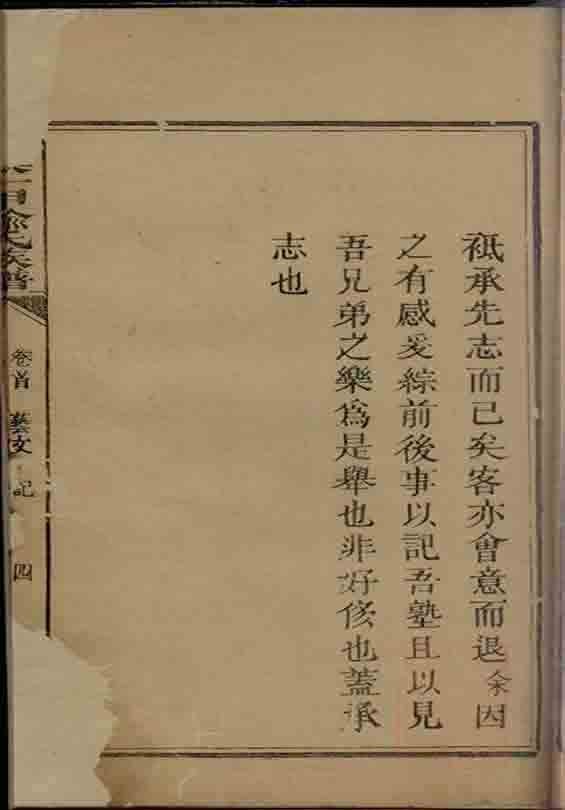 祗承先志而已矣客亦會意而退余因
之有感爰綜前後事以記吾塾且以見
吾兄弟之樂為是舉也非好侈也蓋承
志也
氏族譜
卷首 藝文 記 四